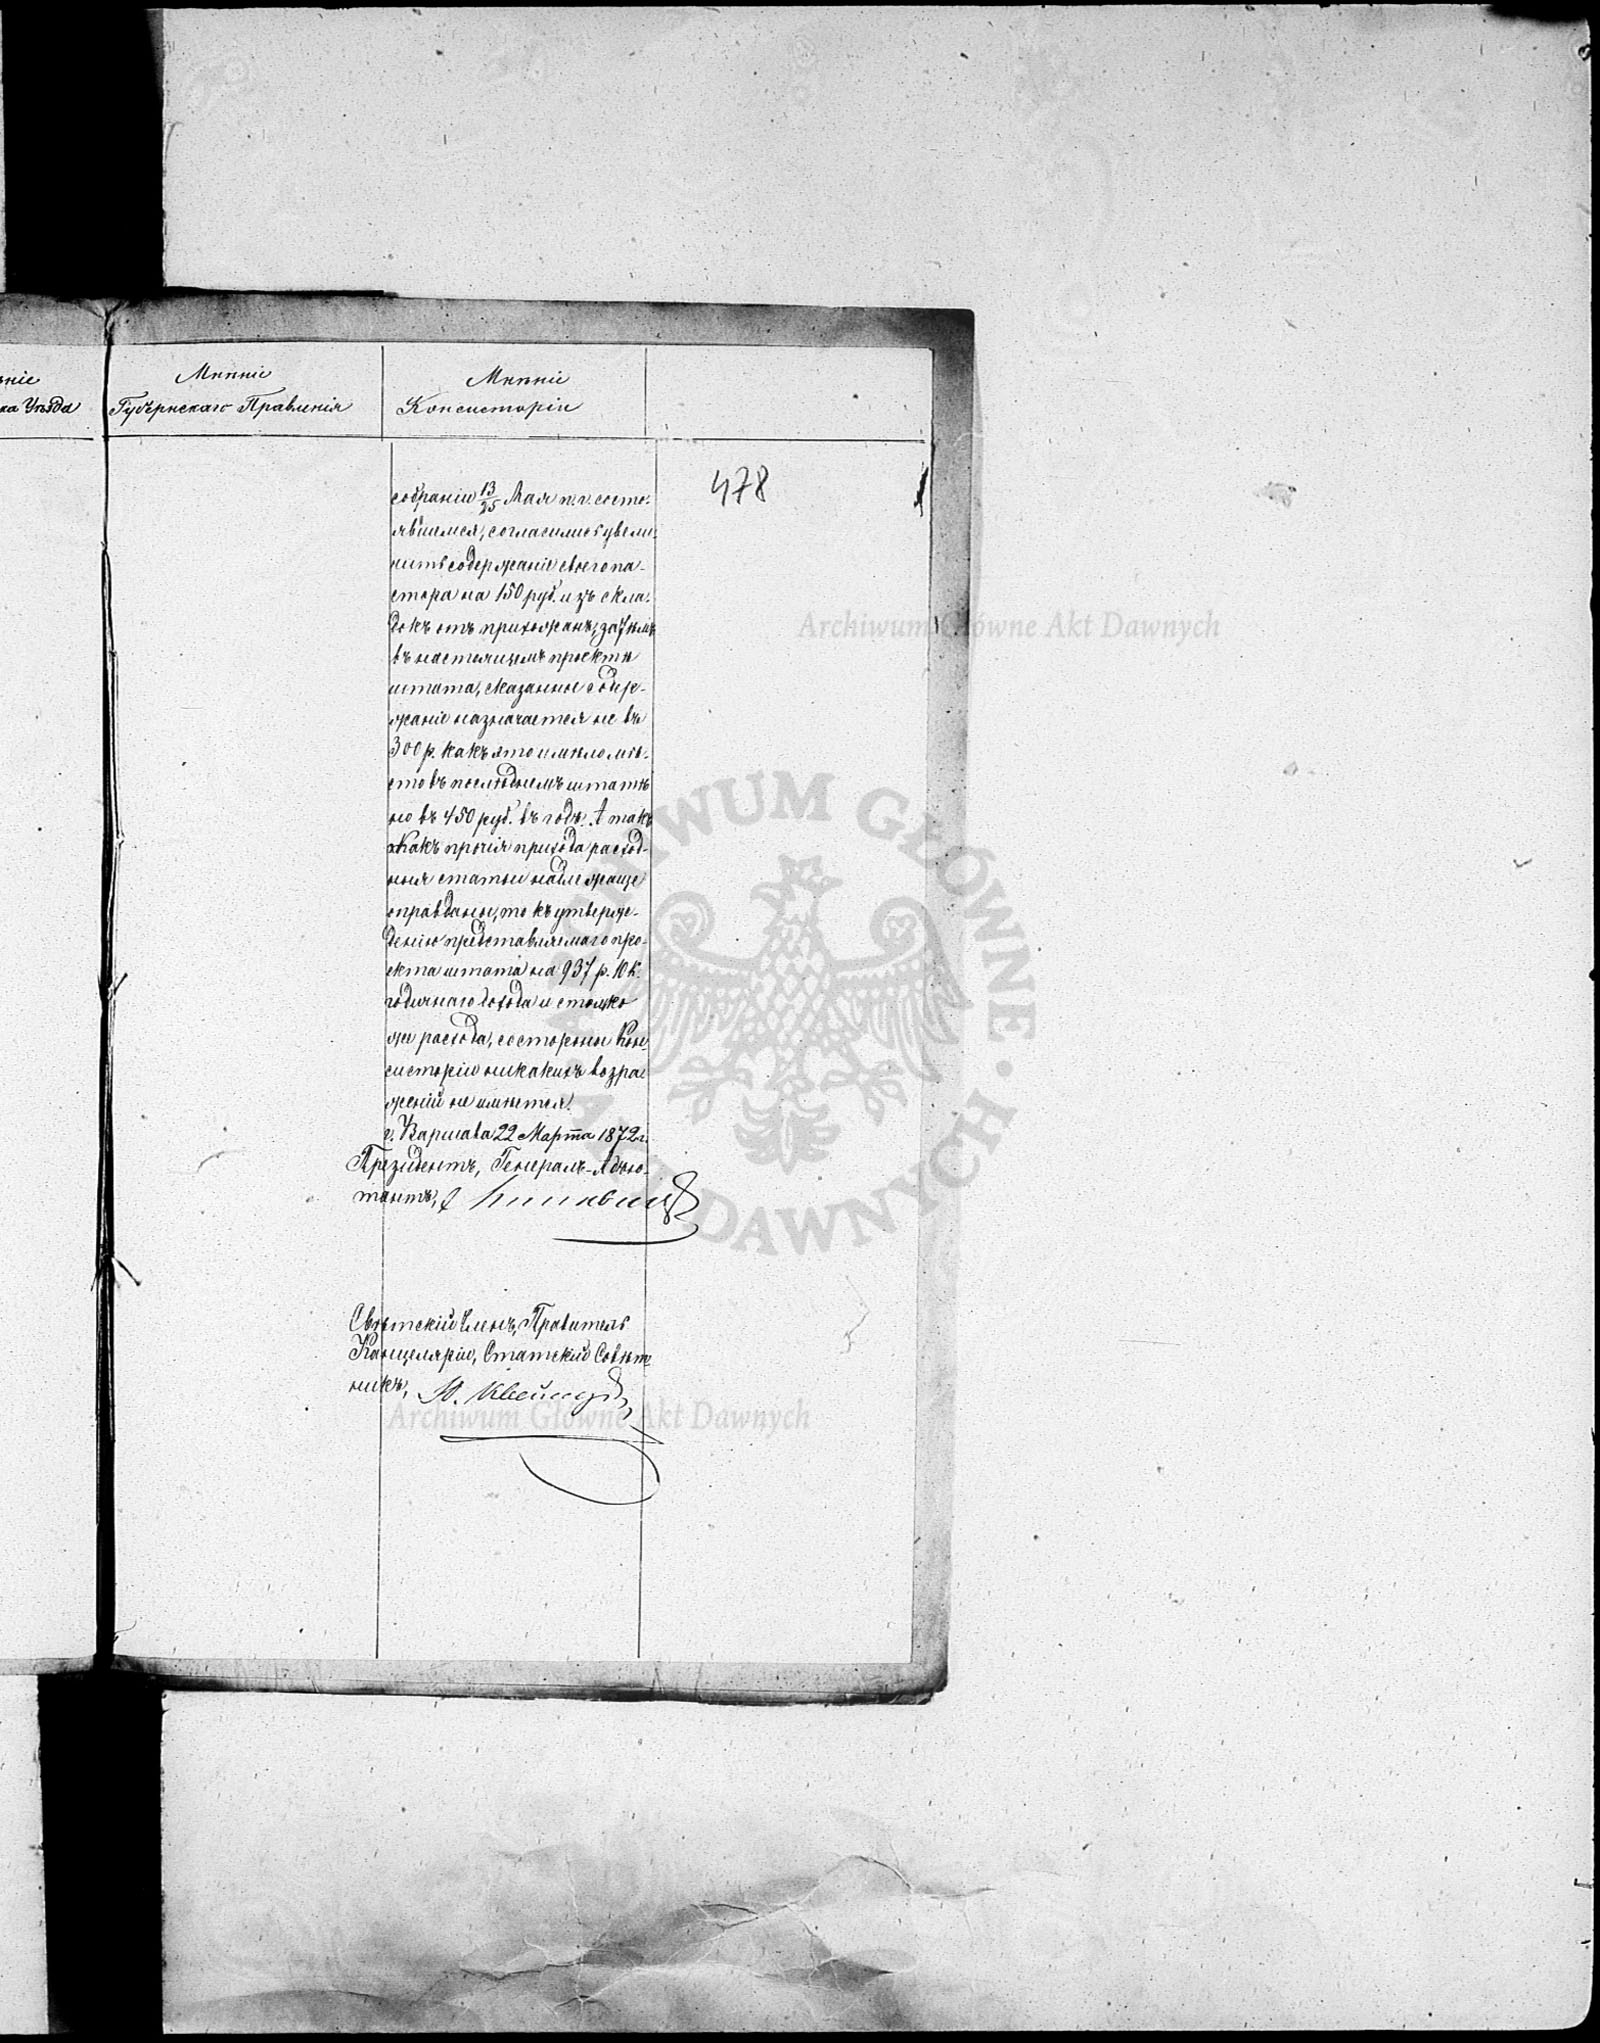 ніе
ка Уѣзда
Мнѣніе
Губернскаго Правленія
Мнѣніе
Консисторіи
478
собраніи 13/25 Мая т. г. состо-
явшемся, согласились увели-
чить содержаніе своего па-
стора на 150 руб. изъ скла-
докъ отъ прихожанъ, затѣмъ
въ настоящемъ проектѣ
штата, сказанное содер-
жаніе назначается не въ
300 р. какъ это имѣло мѣ-
сто въ послѣднемъ штатѣ
но въ 450 руб. въ годъ. А такъ
какъ прочія прихода расход-
ныя статьи надлежаще
оправданы, то къ утверж-
денію представляемаго про-
екта штата на 937 р. 10 к.
годичнаго дохода и столько
же расхода, со стороны Кон-
систоріи никакихъ возра-
женій не имѣется.
г. Варшава 22 Марта 1872 г.
Президентъ, Генералъ-Адъю-
тантъ,
Свѣтскій Членъ, Правитель
Канцеляріи, Статскій Совѣт-
никъ,
Archiwum Główne Akt Dawnych
ARCHIWUM GŁÓWNE · AKT DAWNYCH ·
Archiwum Główne Akt Dawnych